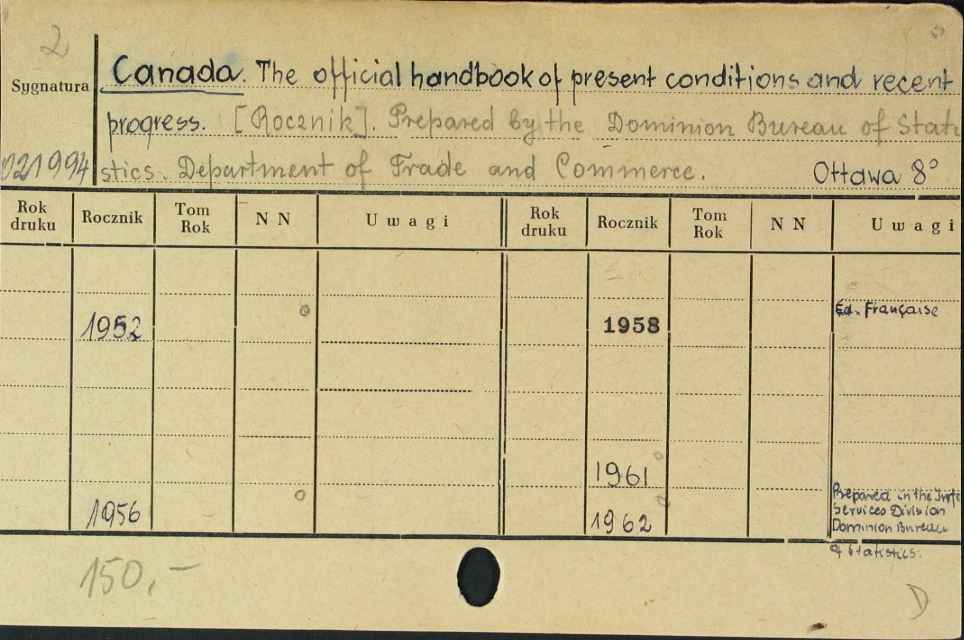 2
Sygnatura
Canada. The official handbook of present conditions and recent
progress. [Rocznik]. Prepared by the Dominion Bureau of Stati
021994 stics. Department of Trade and Commerce. Ottawa 8°
Rok druku Rocznik Tom Rok NN Uwagi Rok druku Rocznik Tom Rok NN Uwagi
Ed. Française
1952 1958
1961
Prepared in the
Services Division
1956 1962 Dominion Bureau
of Statistics.
150,-
D